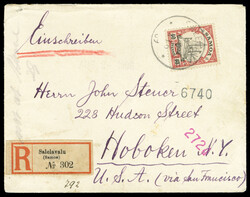 Einschreiben
Herrn John Steuer
6740
228 Hudson Street
Hoboken N.Y.
U.S.A. (via San Francisco)
R
Salelavalu
(Samoa)
No 302
292